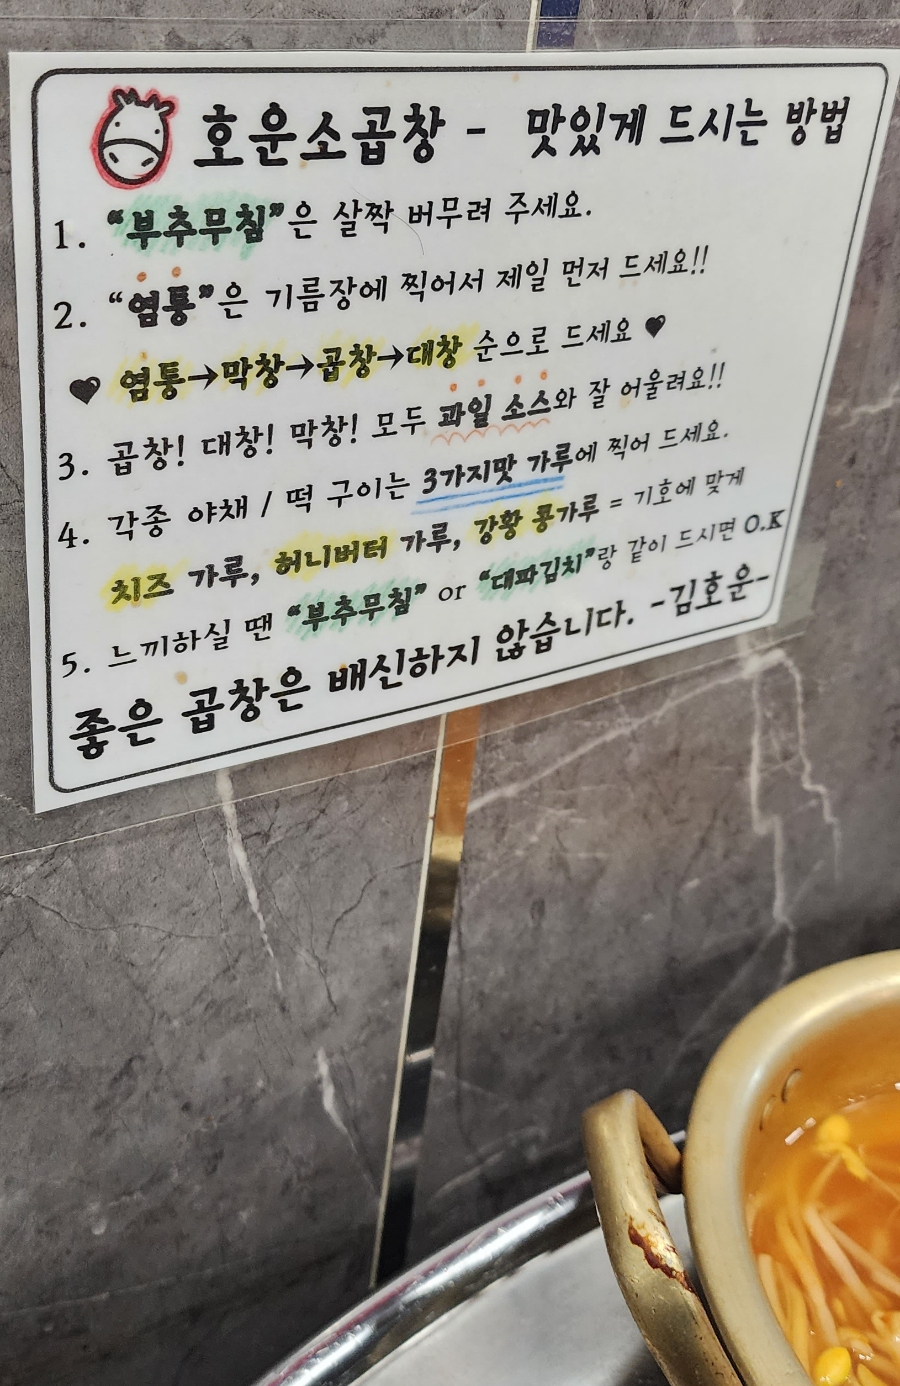 호운소곱창 - 맛있게 드시는 방법
1. "부추무침"은 살짝 버무려 주세요.
2. "염통"은 기름장에 찍어서 제일 먼저 드세요!!
♥ 염통→막창→곱창→대창 순으로 드세요 ♥
3. 곱창! 대창! 막창! 모두 과일 소스와 잘 어울려요!!
4. 각종 야채 / 떡 구이는 3가지맛 가루에 찍어 드세요.
치즈 가루, 허니버터 가루, 강황 콩가루 = 기호에 맞게
5. 느끼하실 땐 "부추무침" or "대파김치"랑 같이 드시면 O.K
좋은 곱창은 배신하지 않습니다. -김호운-